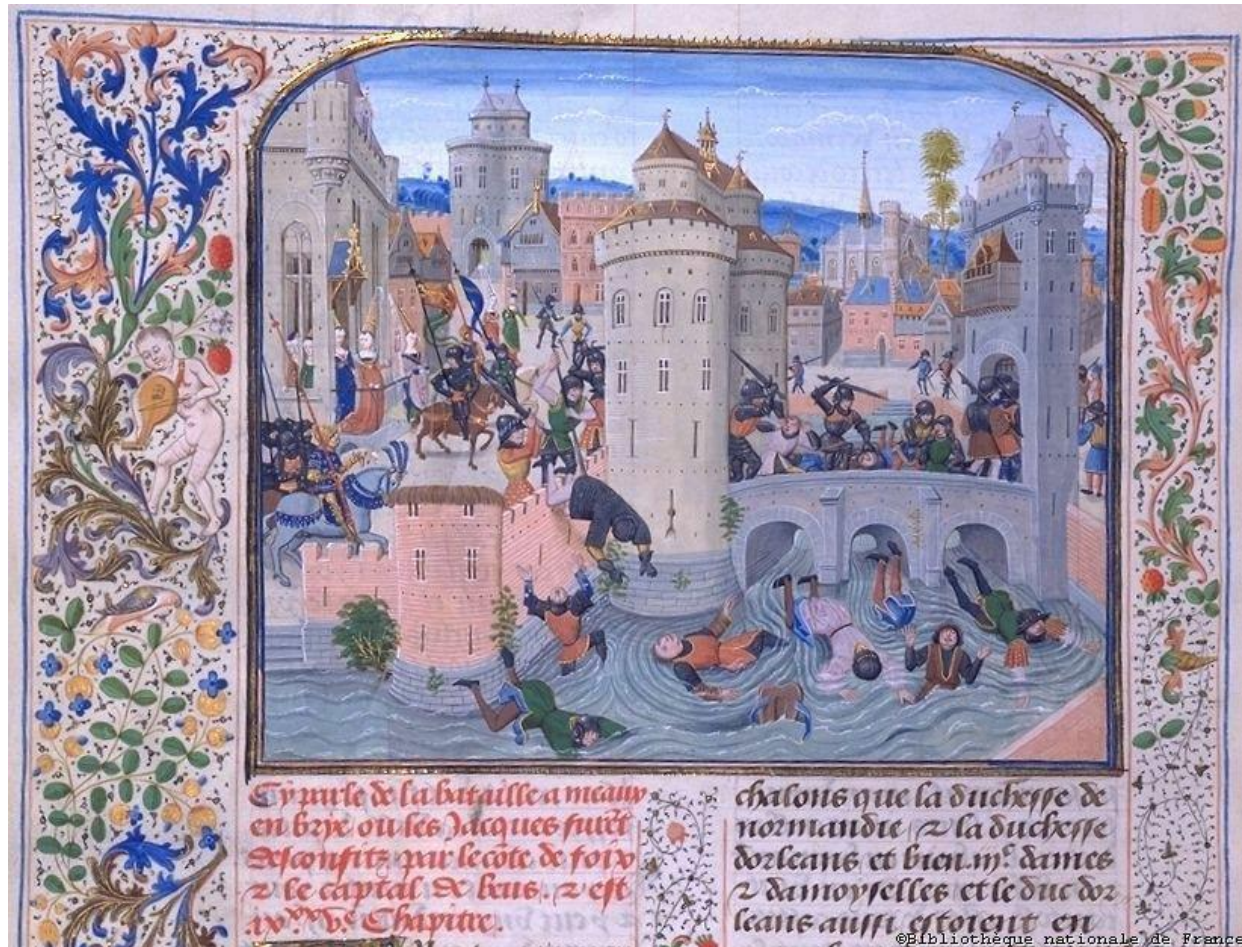 Cy parle de la bataille a meaux
en brye ou les Jacques furēt
desconfitz par le cōte de foix
⁊ le captal de beus. ⁊ est
Chapitre.
chalons que la duchesse de
normandie ⁊ la duchesse
dorleans et bien .iijᶜ. dames
⁊ damoyselles et le duc dor
leans aussi estoient en
©Bibliothèque nationale de France